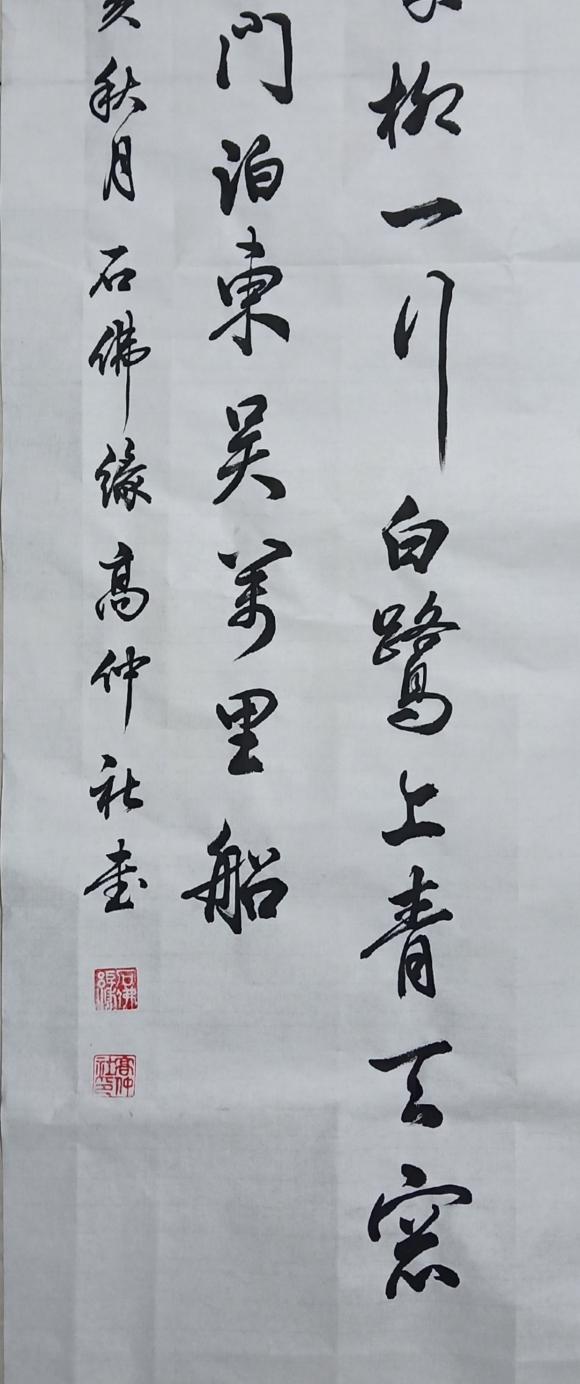 柳一行白鷺上青天窓
門泊東吴萬里船
亥秋月石佛緣高仲社書
石佛緣
高仲社印